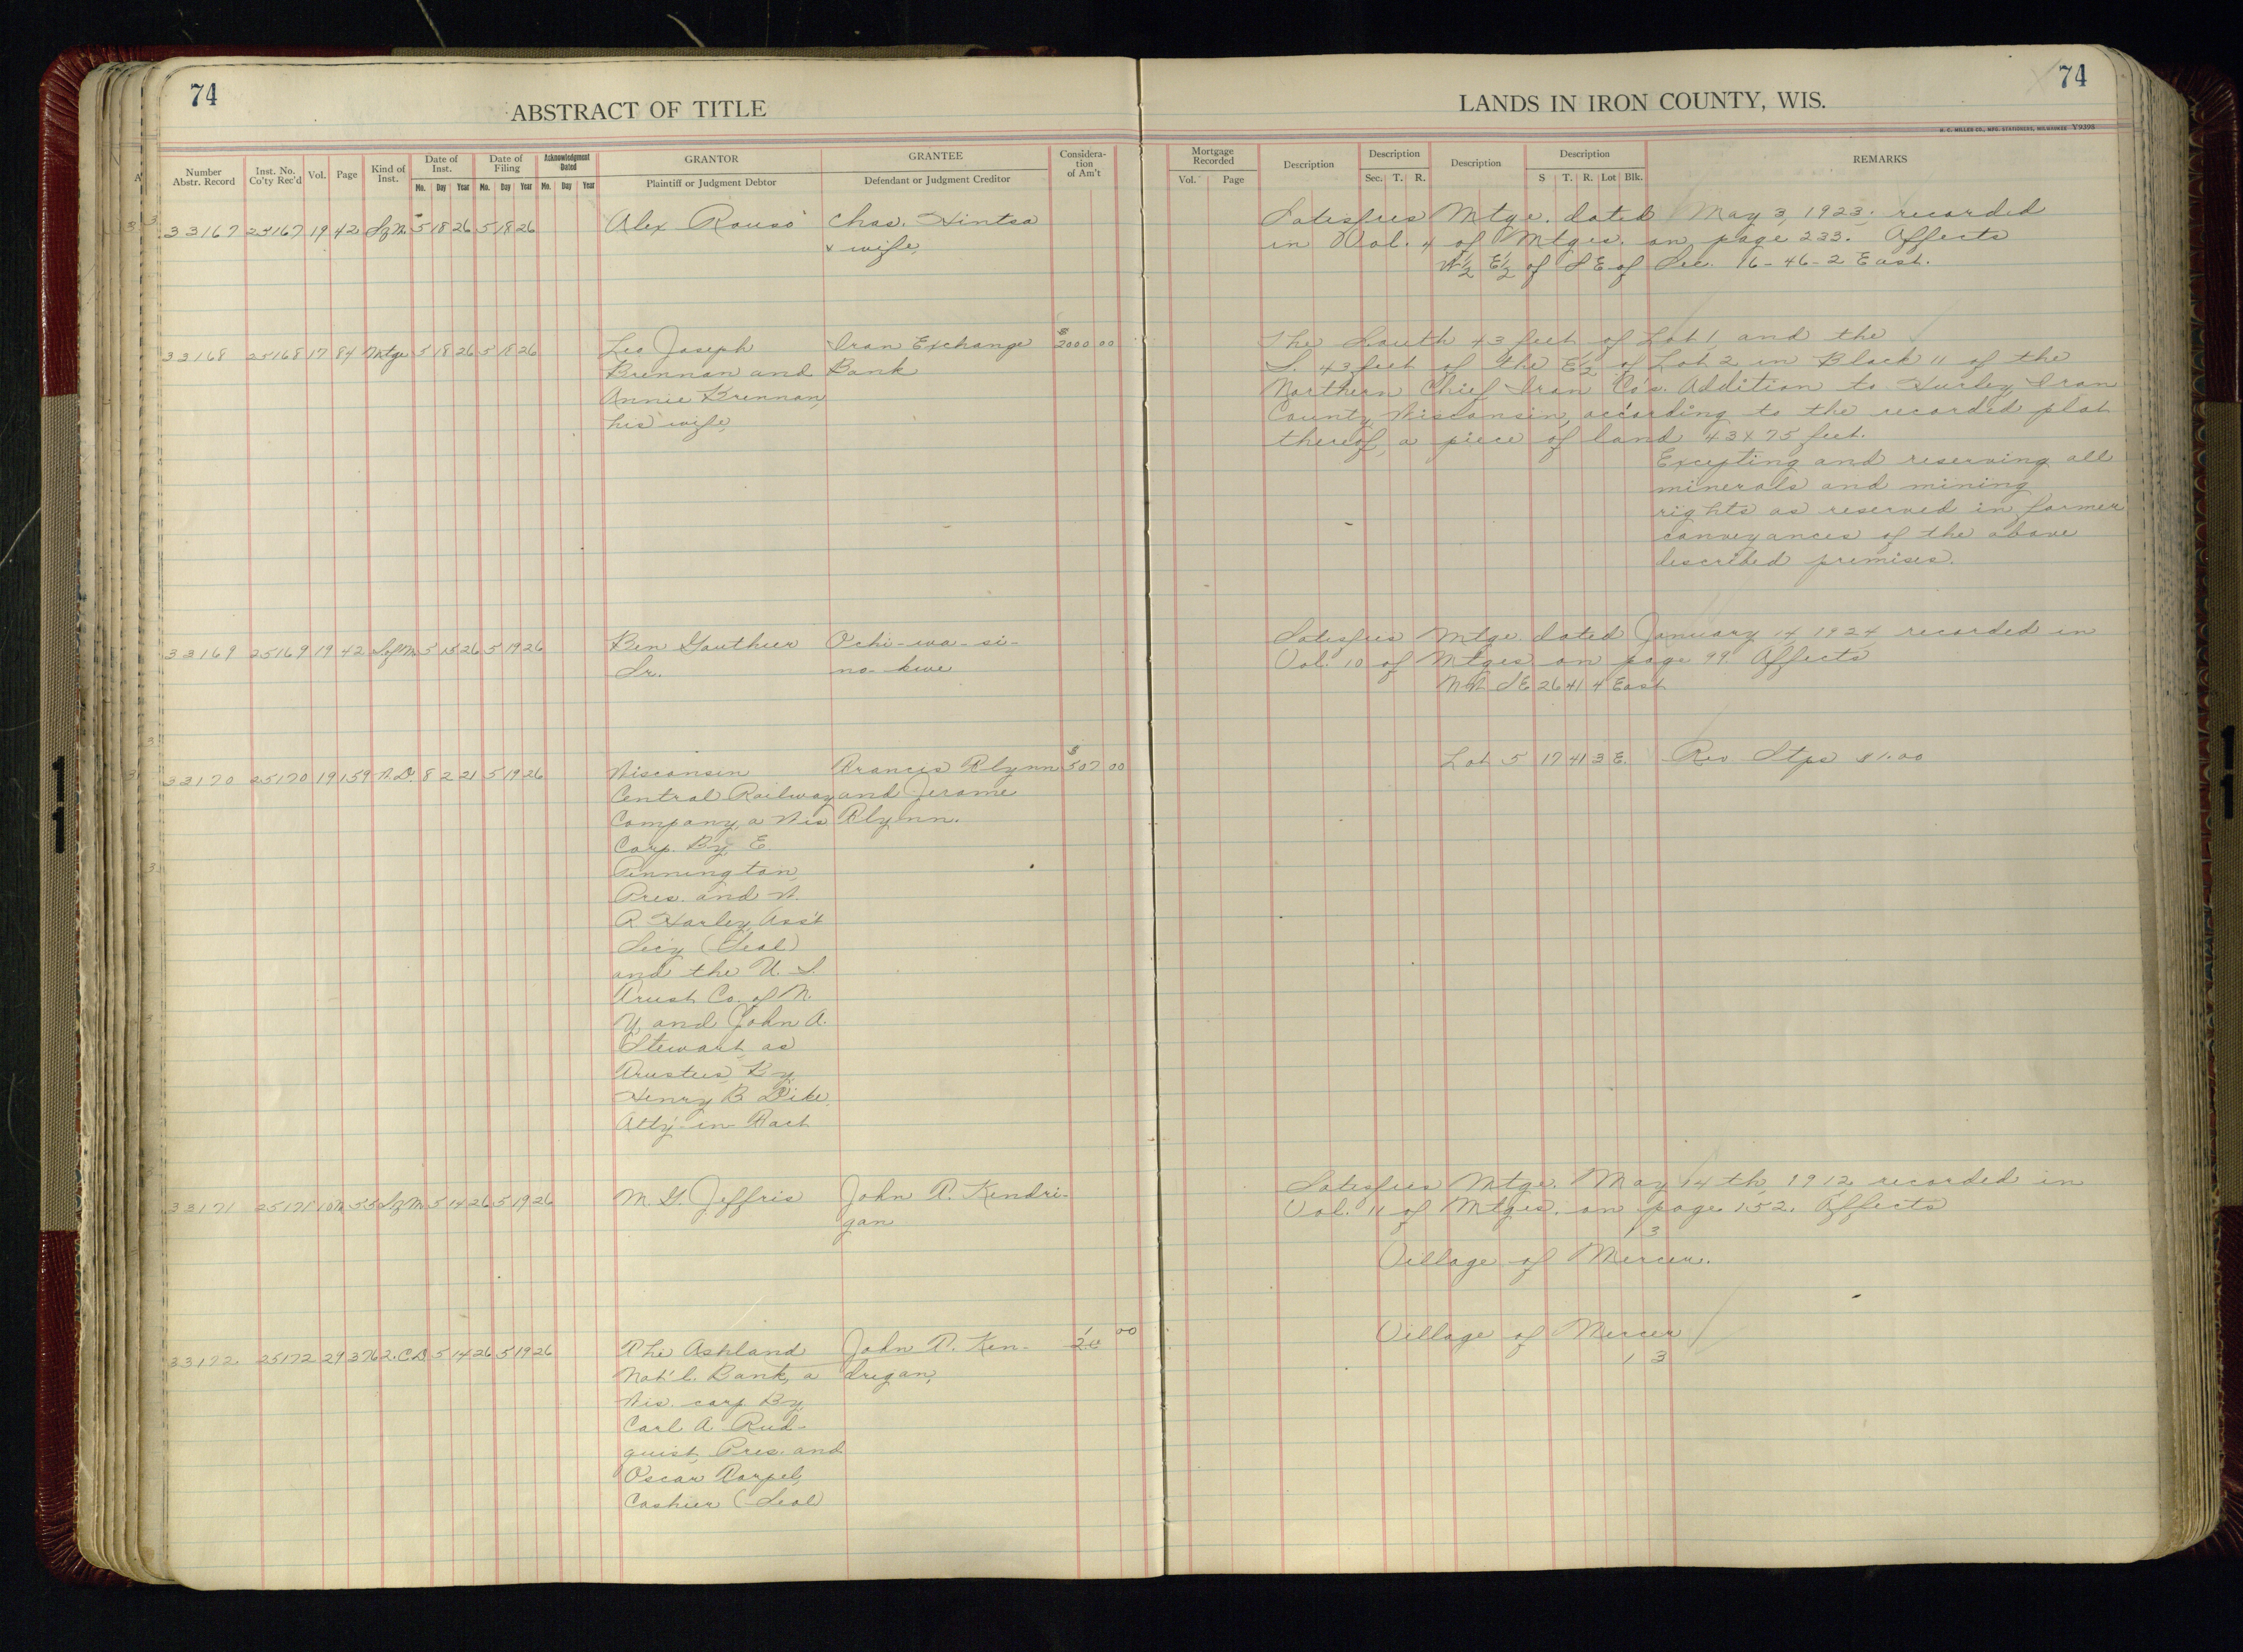 74
ABSTRACT OF TITLE
LANDS IN IRON COUNTY, WIS.
74
H. C. MILLER CO., MFG. STATIONERS, MILWAUKEE Y9395
Number Abstr. Record
Inst. No. Co'ty Rec'd
Vol.
Page
Kind of Inst.
Date of Inst.
Mo. Day Year
Date of Filing
Mo. Day Year
Acknowledgment Dated
Mo. Day Year
GRANTOR
Plaintiff or Judgment Debtor
GRANTEE
Defendant or Judgment Creditor
Considera-
tion
of Am't
Mortgage Recorded
Vol. Page
Description
Description
Sec. T. R.
Description
Description
S T. R. Lot Blk.
REMARKS
33167 25167 19 42 Sf M. 5 18 26 5 18 26 Alex Rouso Chas. Hintsa
& wife,
Satisfies Mtge. dated May 3, 1923, recorded
in Vol. 4 of Mtges. on page 233. Affects
W½ E½ of SE of Sec. 16-46-2 East.
33168 25168 17 84 Mtge 5 18 26 5 18 26 Leo Joseph Iron Exchange $2000 00
Brennan and Bank
Annie Brennan,
his wife,
The South 43 feet of Lot 1, and the
S. 43 feet of the E½ of Lot 2 in Block 11 of the
Northern Chief Iron Co's. Addition to Hurley, Iron
County, Wisconsin, according to the recorded plat
thereof, a piece of land 43 x 75 feet.
Excepting and reserving all
minerals and mining
rights as reserved in former
conveyances of the above
described premises.
33169 25169 19 42 Sf M. 5 15 26 5 19 26 Ben Gauthier Ochi-wa-si-
Sr. no-kwe
Satisfies Mtge. dated January 14, 1924 recorded in
Vol. 10 of Mtges. on page 99. Affects
NW SE 26 41 4 East
33170 25170 19 159 W.D. 8 2 21 5 19 26 Wisconsin Francis Flynn $507 00
Central Railway and Jerome
Company, a Wis Flynn.
Corp. By E.
Pennington,
Pres. and W.
R Harley, Ass't
Sec'y (Seal)
and the U. S.
Trust Co. of N.
Y. and John A.
Stewart as
Trustees, By
Henry B Dike,
Att'y-in-Fact
Lot 5 17 41 3 E. Rev Stps $1.00
33171 25171 10 55 Sf M 5 14 26 5 19 26 M. G. Jeffris John P. Kendri-
gan
Satisfies Mtge. May 14th, 1912 recorded in
Vol. 11 of Mtges. on page 152. Affects
1 3
Village of Mercer.
33172 25172 29 376 2.C.D 5 14 26 5 19 26 The Ashland John P. Ken- 1 00
Nat'l. Bank, a drigan,
Wis. corp. By
Carl A. Rud-
quist, Pres. and
Oscar
Cashier (Seal)
Village of Mercer
1 3